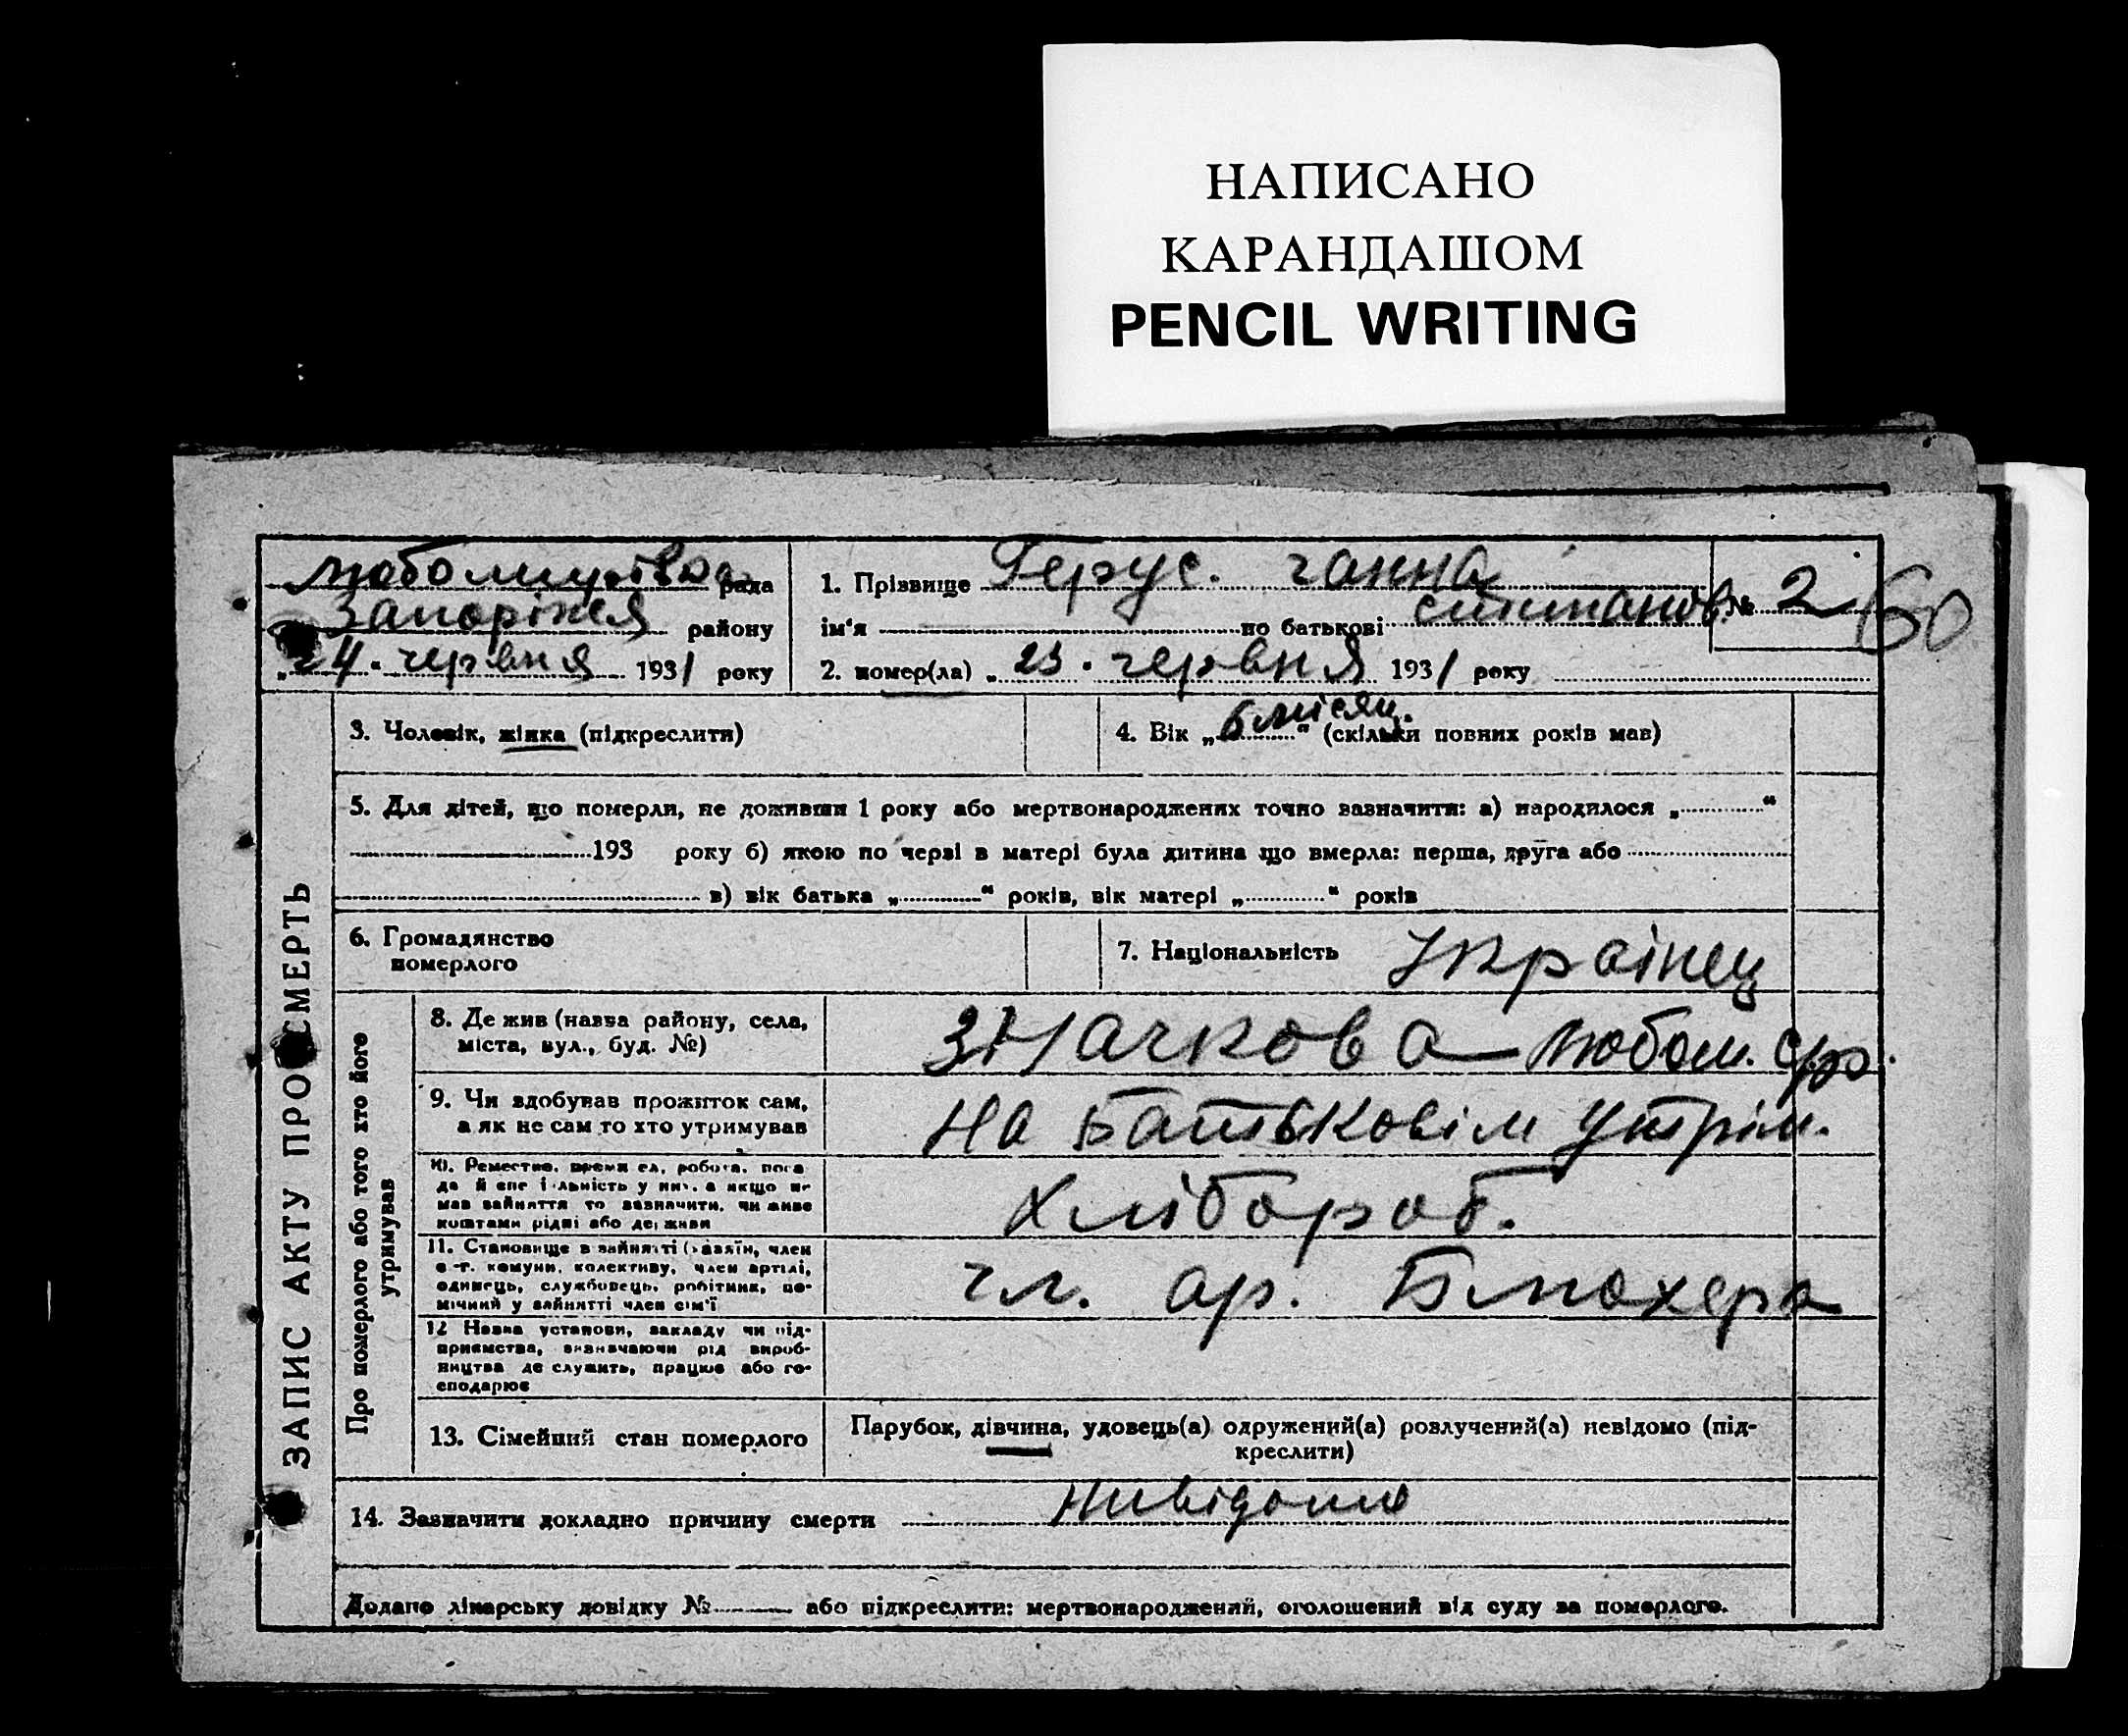 НАПИСАНО
КАРАНДАШОМ
PENCIL WRITING
рада
Запоріжя району
"24. червня 1931 року
1. Прізвище Герус. ганна
ім'я по батькові
№ 2
60
2. помер(ла) „23. червня 1931 року
ЗАПИС АКТУ ПРО СМЕРТЬ
3. Чоловік, жінка (підкреслити)
4. Вік „6 місяц." (скільки повних років мав)
5. Для дітей, що померли, не доживши 1 року або мертвонароджених точно зазначити: а) народилося „ "
193 року б) якою по черзі в матері була дитина що вмерла: перша, друга або
в) вік батька „ " років, вік матері „ " років
6. Громадянство
померлого
7. Національність Українец
Про померлого або того хто його
утримував
8. Де жив (назва району, села,
міста, вул., буд. №)
Значкова Любом. с/р.
9. Чи здобував прожиток сам,
а як не сам то хто утримував
На Батьковім утрім.
10. Ремество, робота, поса
да й спе мав зайняття то зазначити, чи живе
коштами рідні або держави
Хлібороб.
11. Становище в зайнятті (хазяїн, член
с.-г. комуни, колективу, член артілі,
одинець, службовець, робітник, по-
мічний у зайнятті член сім'ї
чл. ар. Блюхера
12 Назва установи, закладу чи під-
приємства, визначаючи рід вироб-
ництва де служить, працює або го-
сподарює
13. Сімейний стан померлого
Парубок, дівчина, удовець(а) одружений(а) розлучений(а) невідомо (під-
креслити)
14. Зазначити докладно причину смерти Нивідомо
Додано лікарську довідку № або підкреслити: мертвонароджений, оголошений від суду за померлого.